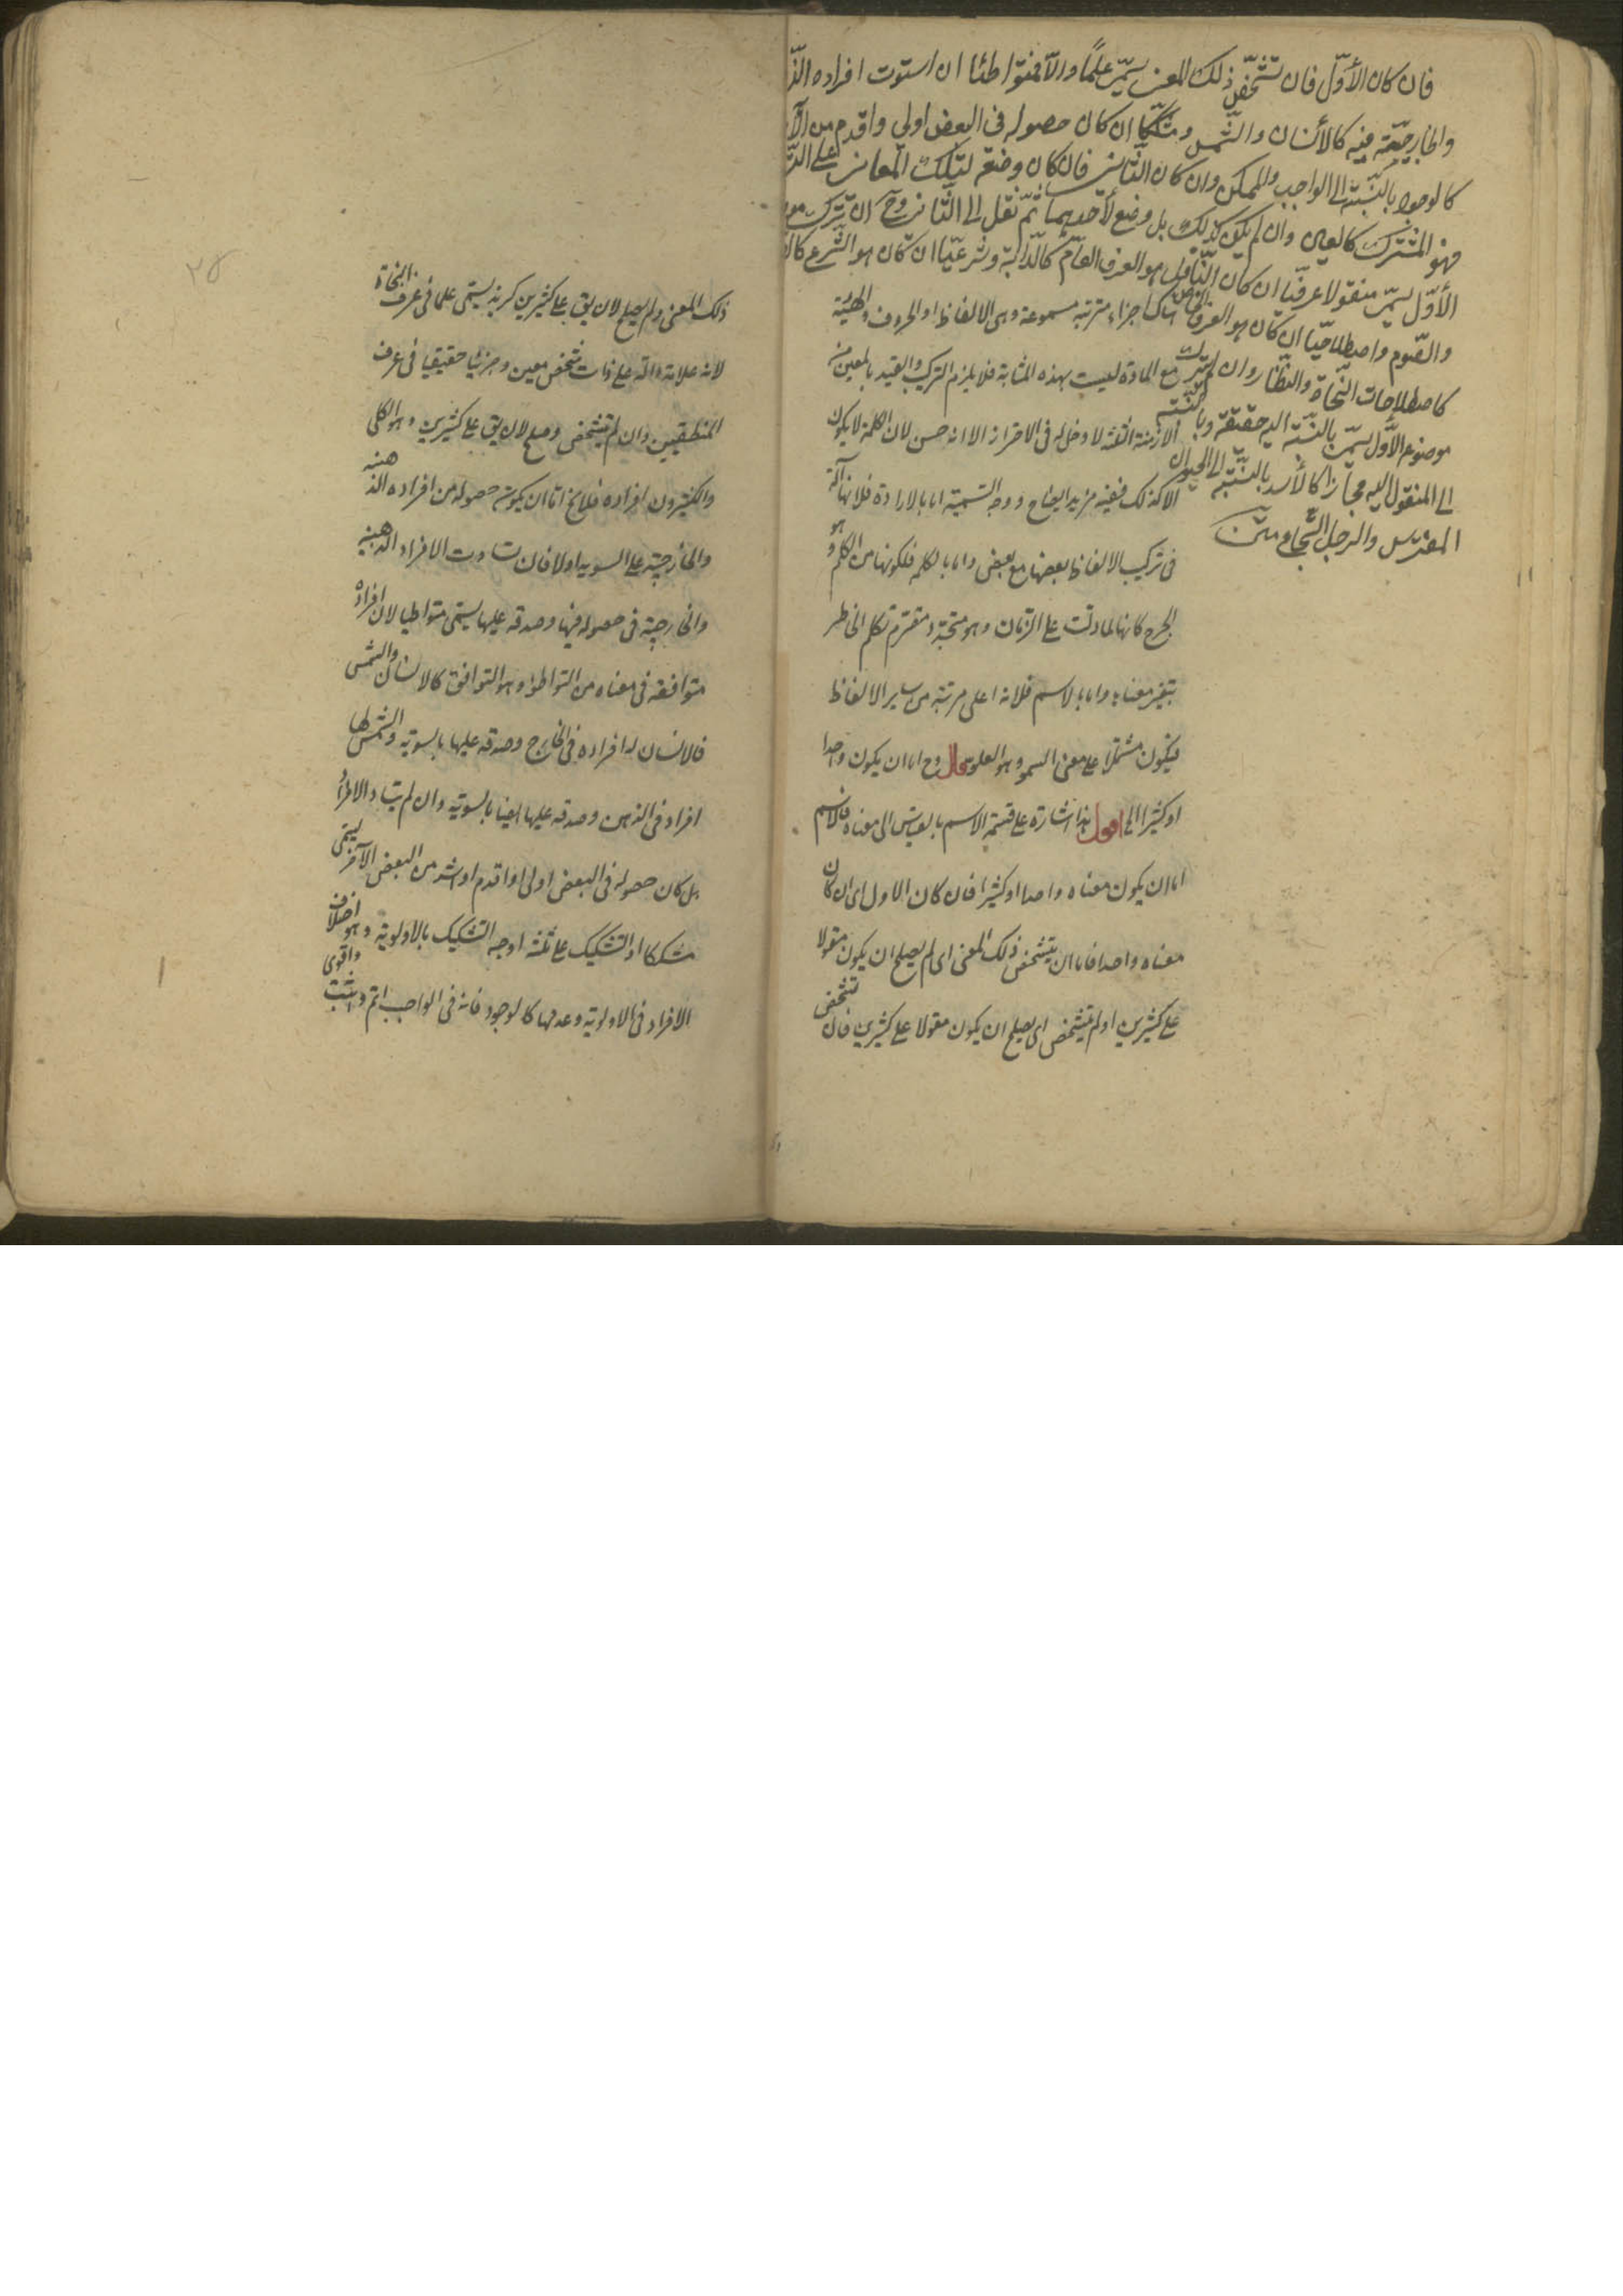 فان كان الأوّل فان تشخّص ذلك المعنى يسمّى علمًا والّا فمتواطئا ان استوت افراده الذّ
والخارجيّة فيه كالأنسان والشّمس ومشكّكا ان كان حصوله فى البعض اولى واقدم من الآ
كالوجود بالنّسبة الى الواجب والممكن وان كان الثّانى فان كان وضعه لتلك المعانى على السّ
فهو المشترك كالعين وان لم يكن كذلك بل وضع لأحدهما ثمّ نقل الى الثّانى وح ان ترك مو
الأوّل يسمّى منقولا عرفيّا ان كان النّاقل هو العرف العامّ كالدّابّة وشرعيّا ان كان هو الشّرع كالـ
والصّوم واصطلاحيّا ان كان هو العرف الخاصّ
كاصطلاحات النّحاة والنّظّار وان لم يترك
موضوع الأوّل يسمّى بالنّسبة اليه حقيقة وبالنّسبة
الى المنقول اليه مجازا كالأسد بالنّسبة الى الحيوان
المفترس والرجل الشّجاع متن
اجزاء مترتبة مسموعة وهى الالفاظ او الحروف والهيئة
مع المادة ليست بهذه المثابة فلا يلزم التركيب والقيد بالمعين من
الازمنة الثلثة لا دخل له فى الاحتراز الا انه حسن لان الكلمة لا يكون
الا كذلك ففيه مزيد ايضاح ووجه التسمية اما بالاداة فلانها آلة
فى تركيب الالفاظ بعضها مع بعض واما بالكلمة فلكونها من الكلم وهو
الجرح كانها لما دلت على الزمان وهو متجدد متصرم تكلم الخاطر
بتغير معناها واما بالاسم فلانه اعلى مرتبة من ساير الالفاظ
فيكون مشتملا على معنى السمو وهو العلو قال وح اما ان يكون واحدا
او كثيرا الخ اقول هذا اشارة على قسمة الاسم بالقياس الى معناه فالاسم
اما ان يكون معناه واحدا او كثيرا فان كان الاول اى ان كان
معناه واحدا فاما ان يتشخص ذلك المعنى اى لم يصلح ان يكون مقولا
على كثيرين او لم يتشخص اى يصلح ان يكون مقولا على كثيرين فان تشخص
٢٥
ذلك المعنى ولم يصلح لان يق على كثيرين كزيد يسمى علما فى عرف النحاة
لانه علامة دالة على ذات شخص معين وجزئيا حقيقيا فى عرف
المنطقيين وان لم يتشخص وصلح لان يق على كثيرين وهو الكلى
والكثيرون افراده فلايخ اما ان يكون حصوله من افراده الذهنيه
والخارجية على السويه اولا فان تساوت الافراد الذهنيه
والخارجية فى حصوله فيها وصدقه عليها يسمى متواطيا لان افراده
متوافقه فى معناه من التواطؤ وهو التوافق كالانسان والشمس
فالانسان له افراده فى الخارج وصدقه عليها بالسوية والشمس لها
افراد فى الذهن وصدقه عليها ايضا بالسوية وان لم يتساو الافراد
بل كان حصوله فى البعض اولى او اقدم او اشد من البعض الآخر يسمى
مشككا او التشكيك على ثلثة اوجه التشكيك بالاولوية وهو اختلاف
الافراد فى الاولوية وعدمها كالوجود فانه فى الواجب اتم واثبت واقوى